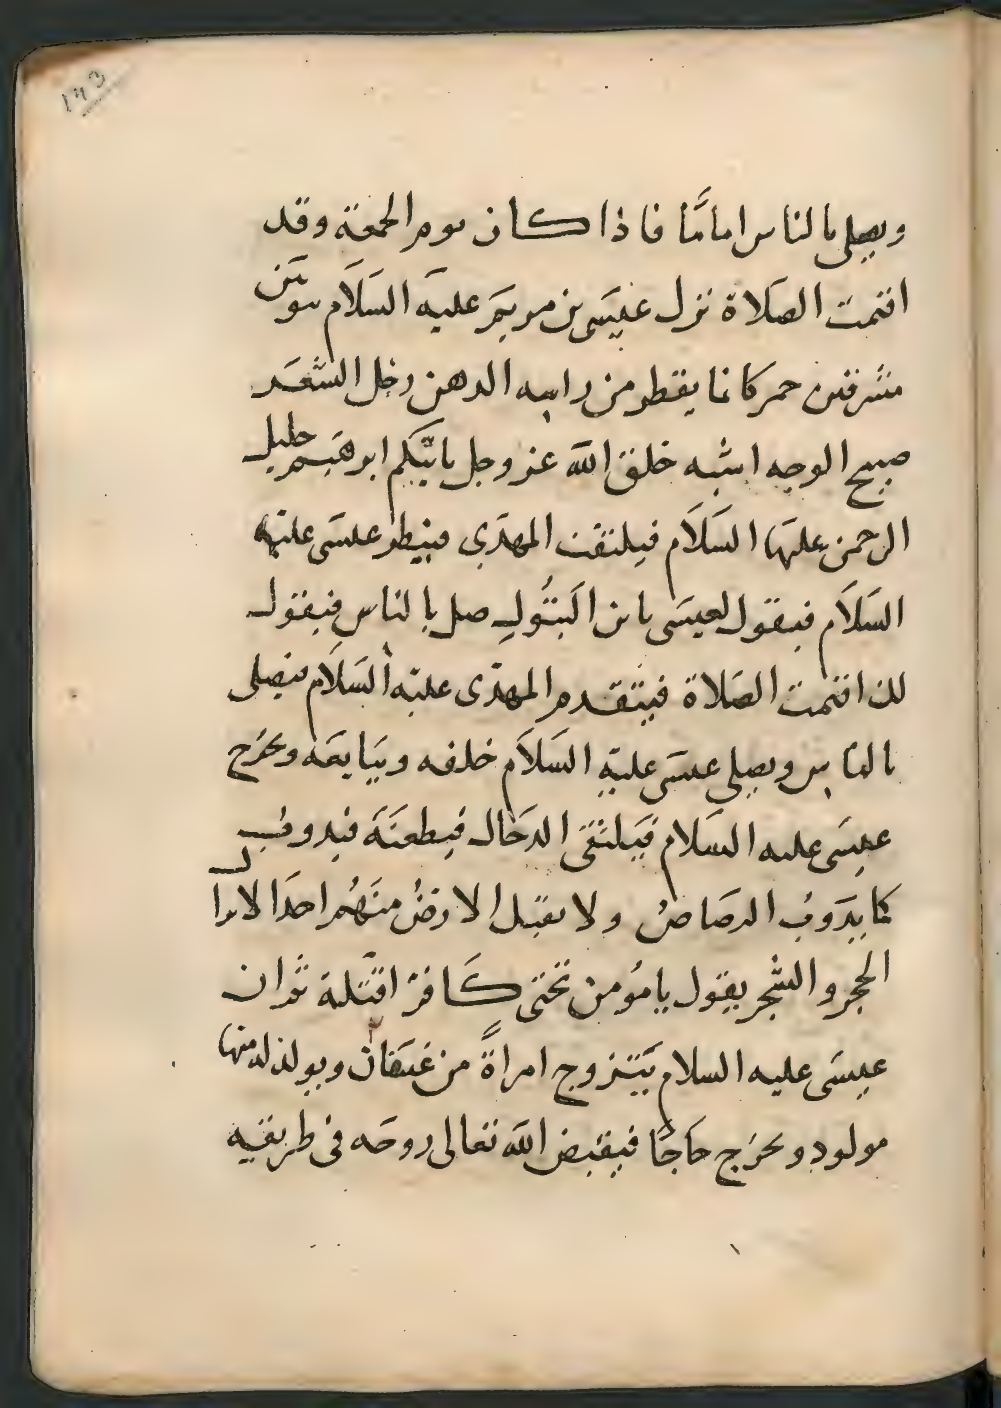 ١٩٣
ويصلي بالناس اماماً فاذا كان يوم الجمعة وقد
اقيمت الصلاة نزل عيسى بن مريم عليه السلام بثوبين
مشرقين حمر كانما يقطر من راسه الدهن رجل الشعر
صبيح الوجه اشبه خلق الله عز وجل بابيكم ابرهيم خليل
الرحمن عليهما السلام فيلتفت المهدي فينظر عيسى عليه
السلام فيقول لعيسى يا بن البتول صل بالناس فيقول
لك اقيمت الصلاة فيتقدم المهدى عليه السلام فيصلى
بالناس ويصلى عيسى عليه السلام خلفه ويبايعه ويخرج
عيسى عليه السلام فيلتقى الدجال فيطعنه فيذوب
كما يذوب الرصاص ولا تقبل الارض منهم احدا لا يزال
الحجر والشجر يقول يا مؤمن تحتى كافر اقتله ثم ان
عيسى عليه السلام يتزوج امراةً من غسان ويولد له منها
مولود ويخرج حاجًا فيقبض الله تعالى روحه فى طريقه